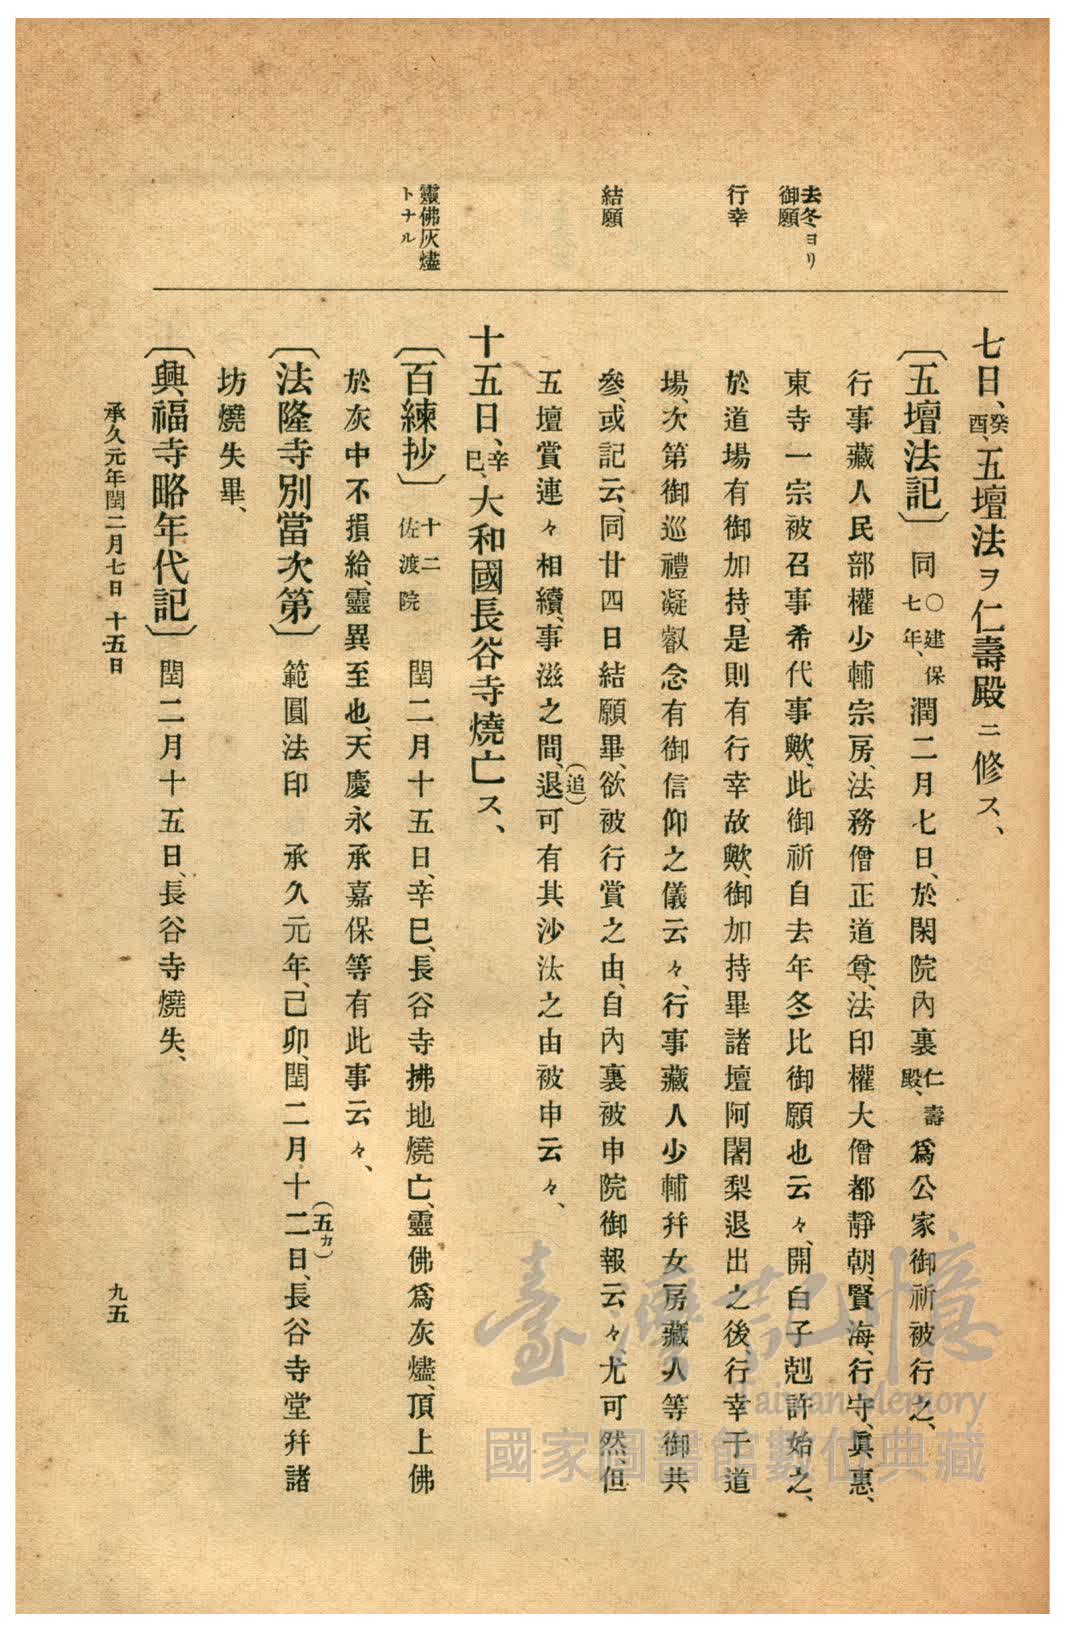 去冬ヨリ
御願
行幸
結願
靈佛灰燼
トナル
七日、癸酉、五壇法ヲ仁壽殿ニ修ス、
〔五壇法記〕 同〇建保七年、潤二月七日、於閑院內裏仁壽殿、爲公家御祈被行之、
行事藏人民部權少輔宗房、法務僧正道尊、法印權大僧都靜朝、賢海、行守、眞惠、
東寺一宗被召事希代事歟、此御祈自去年冬比御願也云々、開白子剋許始之、
於道場有御加持、是則有行幸故歟、御加持畢諸壇阿闍梨退出之後行幸于道
場、次第御巡禮凝叡念有御信仰之儀云々、行事藏人少輔幷女房藏人等御共
參、或記云、同廿四日結願畢、欲被行賞之由、自內裏被申院御報云々、尤可然、但
五壇賞連々相續、事滋之間、退(追)可有其沙汰之由被申云々、
十五日、辛巳、大和國長谷寺燒亡ス、
〔百練抄〕 十二 佐渡院 閏二月十五日、辛巳、長谷寺拂地燒亡、靈佛爲灰燼、頂上佛
於灰中不損給、靈異至也、天慶永承嘉保等有此事云々、
〔法隆寺別當次第〕 範圓法印 承久元年、己卯、閏二月十二(五カ)日、長谷寺堂幷諸
坊燒失畢、
〔興福寺略年代記〕 閏二月十五日、長谷寺燒失、
承久元年閏二月七日 十五日
九五
臺灣記憶
Taiwan Memory
國家圖書館數位典藏